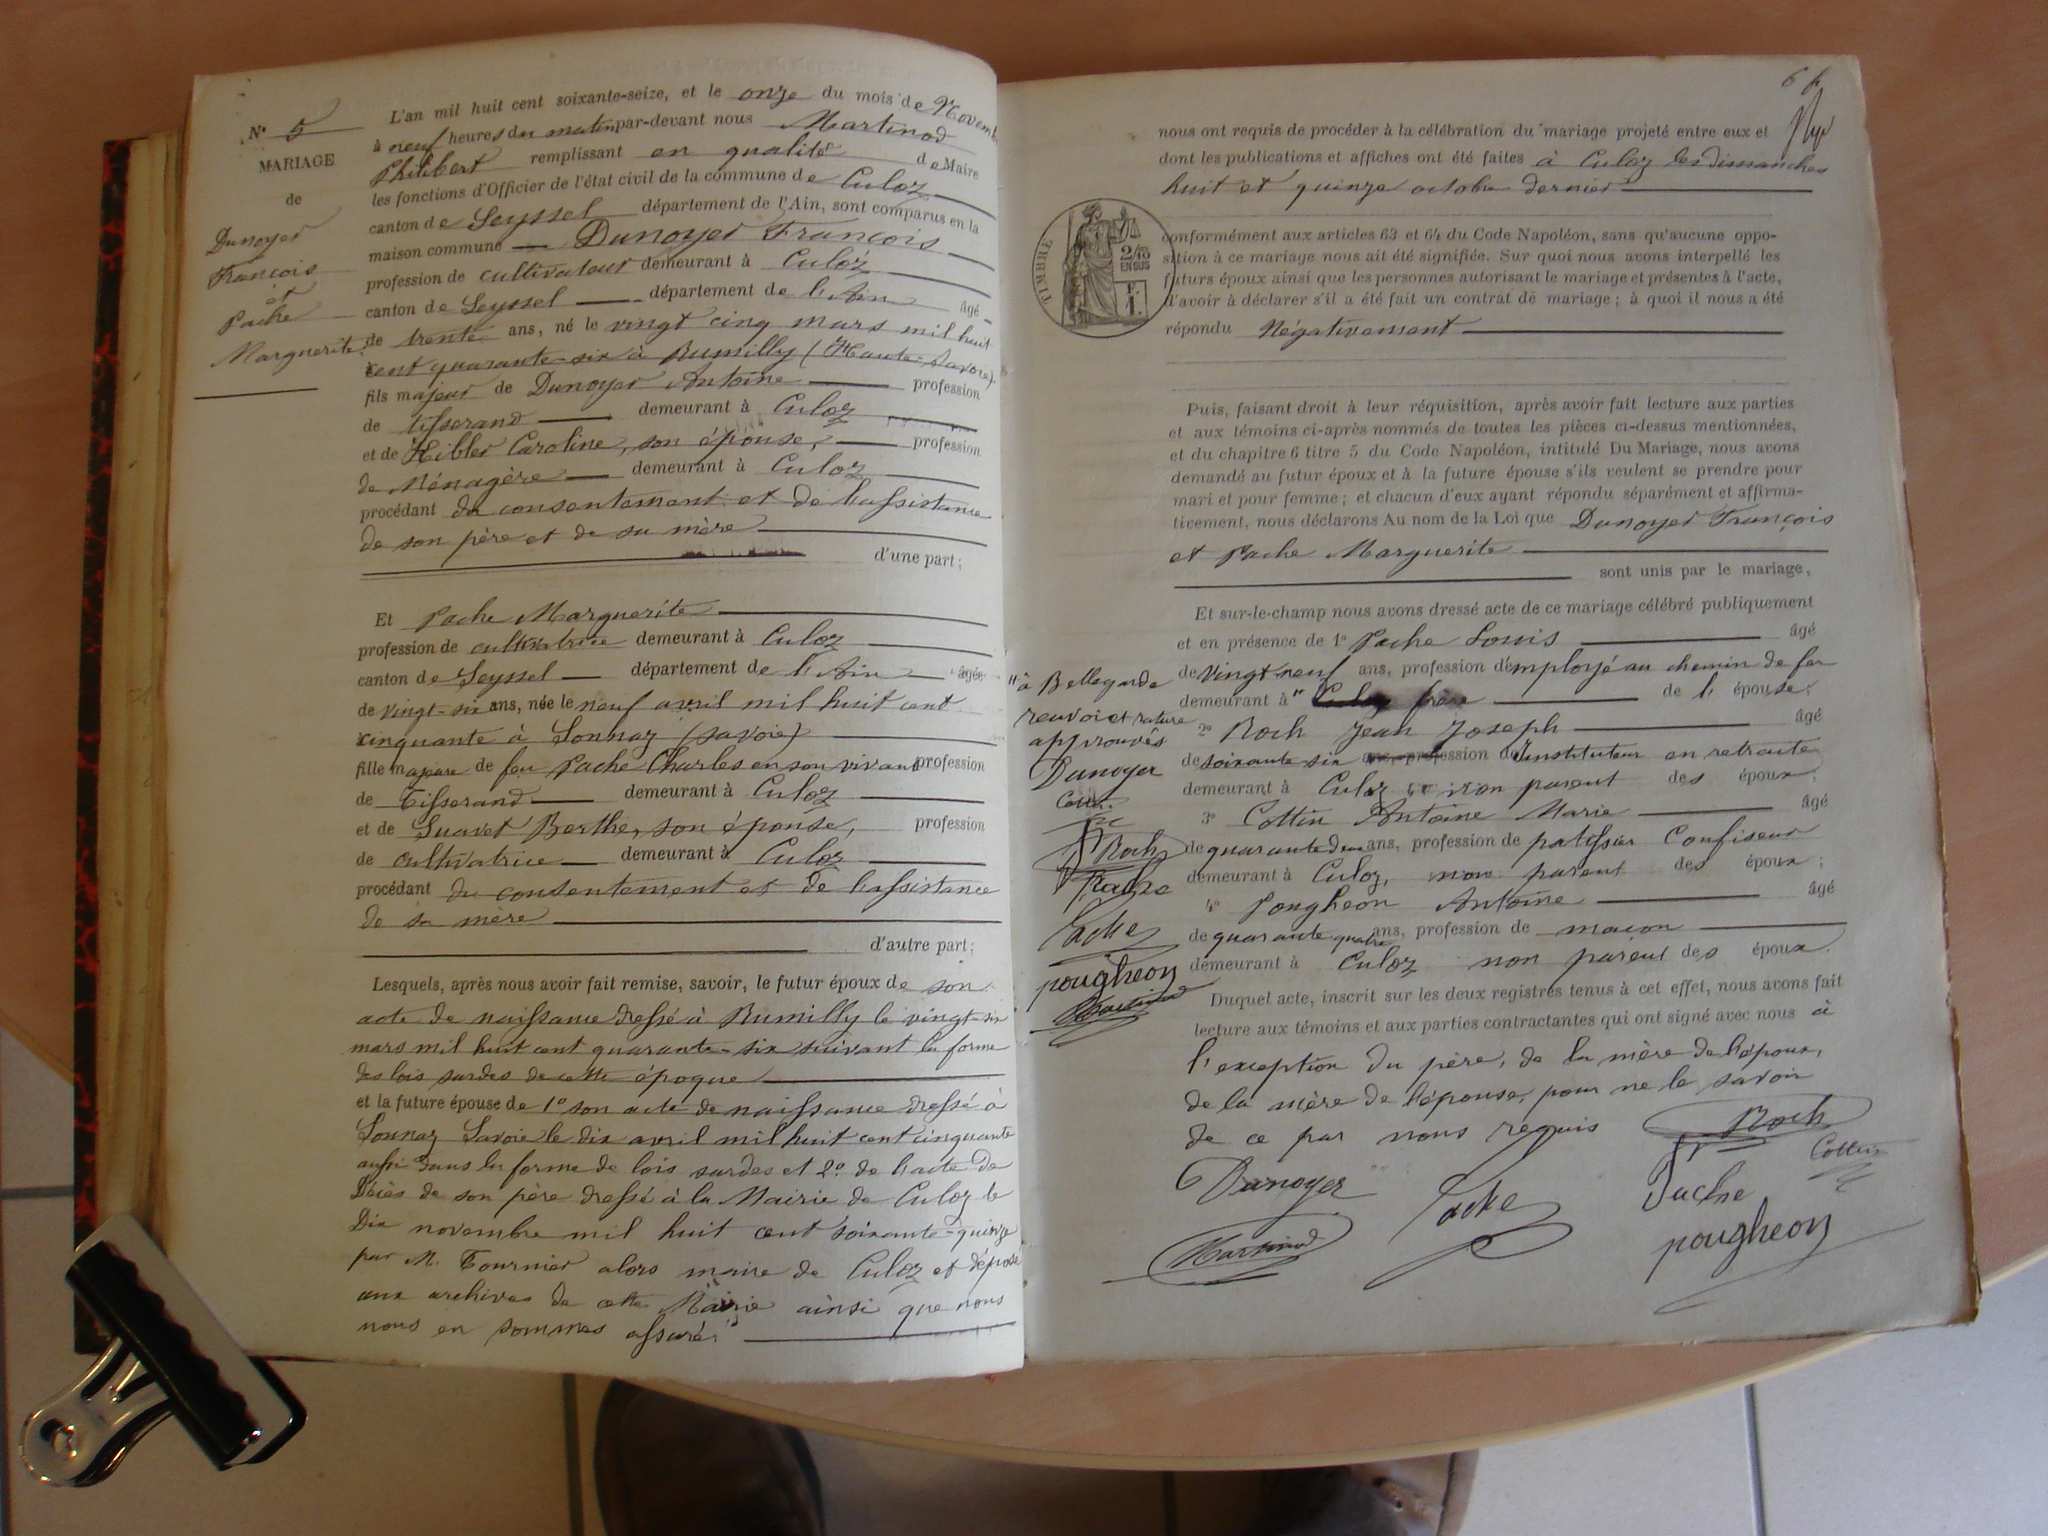 N° 5
MARIAGE
de
Dunoyer
François
et
Pache
Marguerite
L'an mil huit cent soixante-seize, et le onze du mois de Novem
à neuf heures du matin par-devant nous Martinod
Philibert remplissant en qualité de Maire
les fonctions d'Officier de l'état civil de la commune de Culoz
canton de Seyssel département de l'Ain, sont comparus en la
maison commune Dunoyer François
profession de cultivateur demeurant à Culoz
canton de Seyssel département de l'Ain âgé
de trente ans, né le vingt cinq mars mil huit
cent quarante-six à Rumilly (Haute-Savoie)
fils majeur de Dunoyer Antoine profession
de tisserand demeurant à Culoz
et de Hibler Caroline, son épouse, profession
de Ménagère demeurant à Culoz
procédant du consentement et de l'assistance
de son père et de sa mère
d'une part;
Et Pache Marguerite
profession de cultivatrice demeurant à Culoz
canton de Seyssel département de l'Ain âgée
de vingt-six ans, née le neuf avril mil huit cent
cinquante à Sonnaz (Savoie)
fille majeure de feu Pache Charles en son vivant profession
de Tisserand demeurant à Culoz
et de Suavet Berthe, son épouse, profession
de cultivatrice demeurant à Culoz
procédant du consentement et de l'assistance
de sa mère
d'autre part;
Lesquels, après nous avoir fait remise, savoir, le futur époux de son
acte de naissance dressé à Rumilly le vingt-six
mars mil huit cent quarante-six suivant la forme
des lois sardes de cette époque
et la future épouse de 1° son acte de naissance dressé à
Sonnaz Savoie le dix avril mil huit cent cinquante
aussi dans la forme de lois sardes et 2° de l'acte de
Décès de son père dressé à la Mairie de Culoz le
Dix novembre mil huit cent soixante-quinze
par M. Fournier alors maire de Culoz et déposé
aux archives de cette Mairie ainsi que nous
nous en sommes assurés
64
nous ont requis de procéder à la célébration du mariage projeté entre eux et
dont les publications et affiches ont été faites à Culoz les dimanches
huit et quinze octobre dernier
TIMBRE
2/10
EN SUS
F.
1.
conformément aux articles 63 et 64 du Code Napoléon, sans qu'aucune oppo-
sition à ce mariage nous ait été signifiée. Sur quoi nous avons interpellé les
futurs époux ainsi que les personnes autorisant le mariage et présentes à l'acte,
d'avoir à déclarer s'il a été fait un contrat de mariage; à quoi il nous a été
répondu Négativement
Puis, faisant droit à leur réquisition, après avoir fait lecture aux parties
et aux témoins ci-après nommés de toutes les pièces ci-dessus mentionnées,
et du chapitre 6 titre 5 du Code Napoléon, intitulé Du Mariage, nous avons
demandé au futur époux et à la future épouse s'ils veulent se prendre pour
mari et pour femme; et chacun d'eux ayant répondu séparément et affirma-
ticement, nous déclarons Au nom de la Loi que Dunoyer François
et Pache Marguerite
sont unis par le mariage,
Et sur-le-champ nous avons dressé acte de ce mariage célébré publiquement
et en présence de 1° Pache Louis âgé
de vingt neuf ans, profession d'employé au chemin de fer
demeurant à " Culoz frère de l'épouse;
2° Roch Jean Joseph âgé
de soixante six ans, profession de Instituteur en retraite
demeurant à Culoz non parent des époux;
3° Cottin Antoine Marie âgé
de quarante deux ans, profession de patissier Confiseur
demeurant à Culoz, non parent des époux;
4° Pougheon Antoine âgé
de quarante quatre ans, profession de maçon
demeurant à Culoz non parent des époux.
Duquel acte, inscrit sur les deux registres tenus à cet effet, nous avons fait
lecture aux témoins et aux parties contractantes qui ont signé avec nous à
l'exception du père, de la mère de l'époux,
de la mère de l'épouse, pour ne le savoir
de ce par nous requis
Roch
Cottin
Dunoyer
Pache
Pache
Martinod
pougheon
" à Bellegarde
renvoi et rature
approuvés
Dunoyer
Cottin
Roch
Pache
Pache
pougheon
Martinod